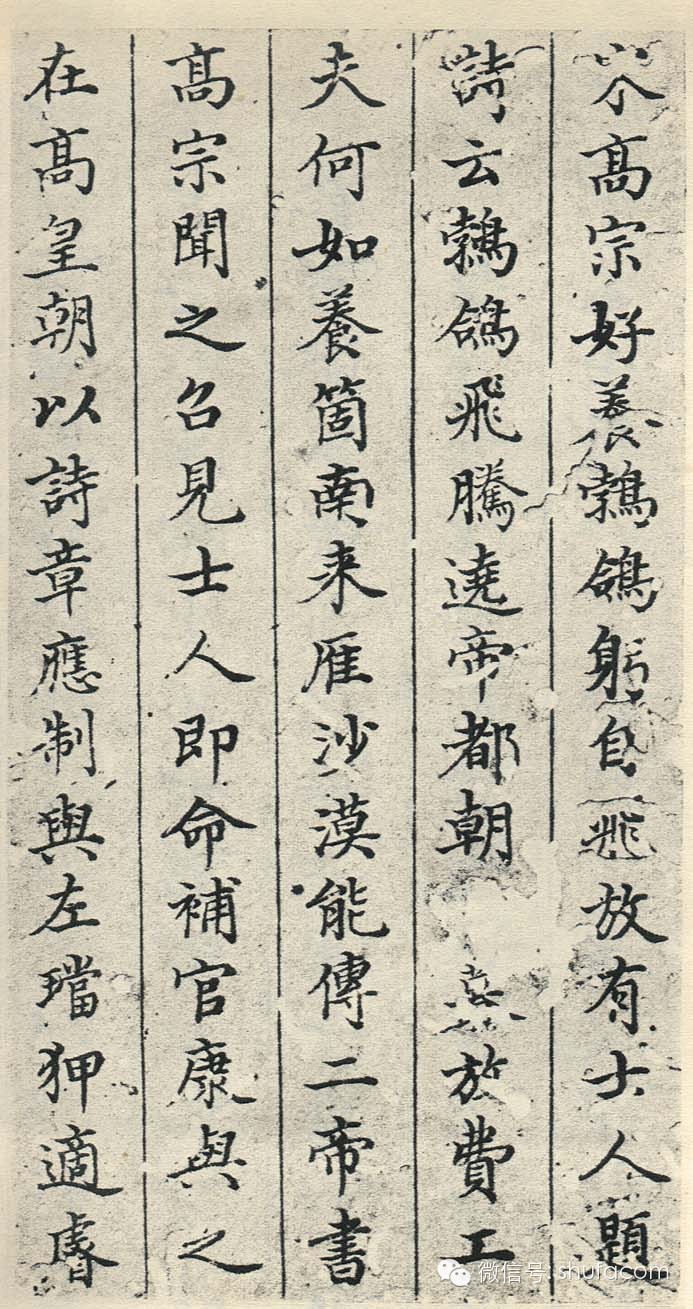 髙宗好養鵓鴿躬自飛放有士人題
詩云鵓鴿飛騰遶帝都朝放費工
夫何如養箇南来雁沙漠能傳二帝書
髙宗聞之召見士人即命補官康與之
在髙皇朝以詩章應制與左璫狎適睿
微信号: shufacom